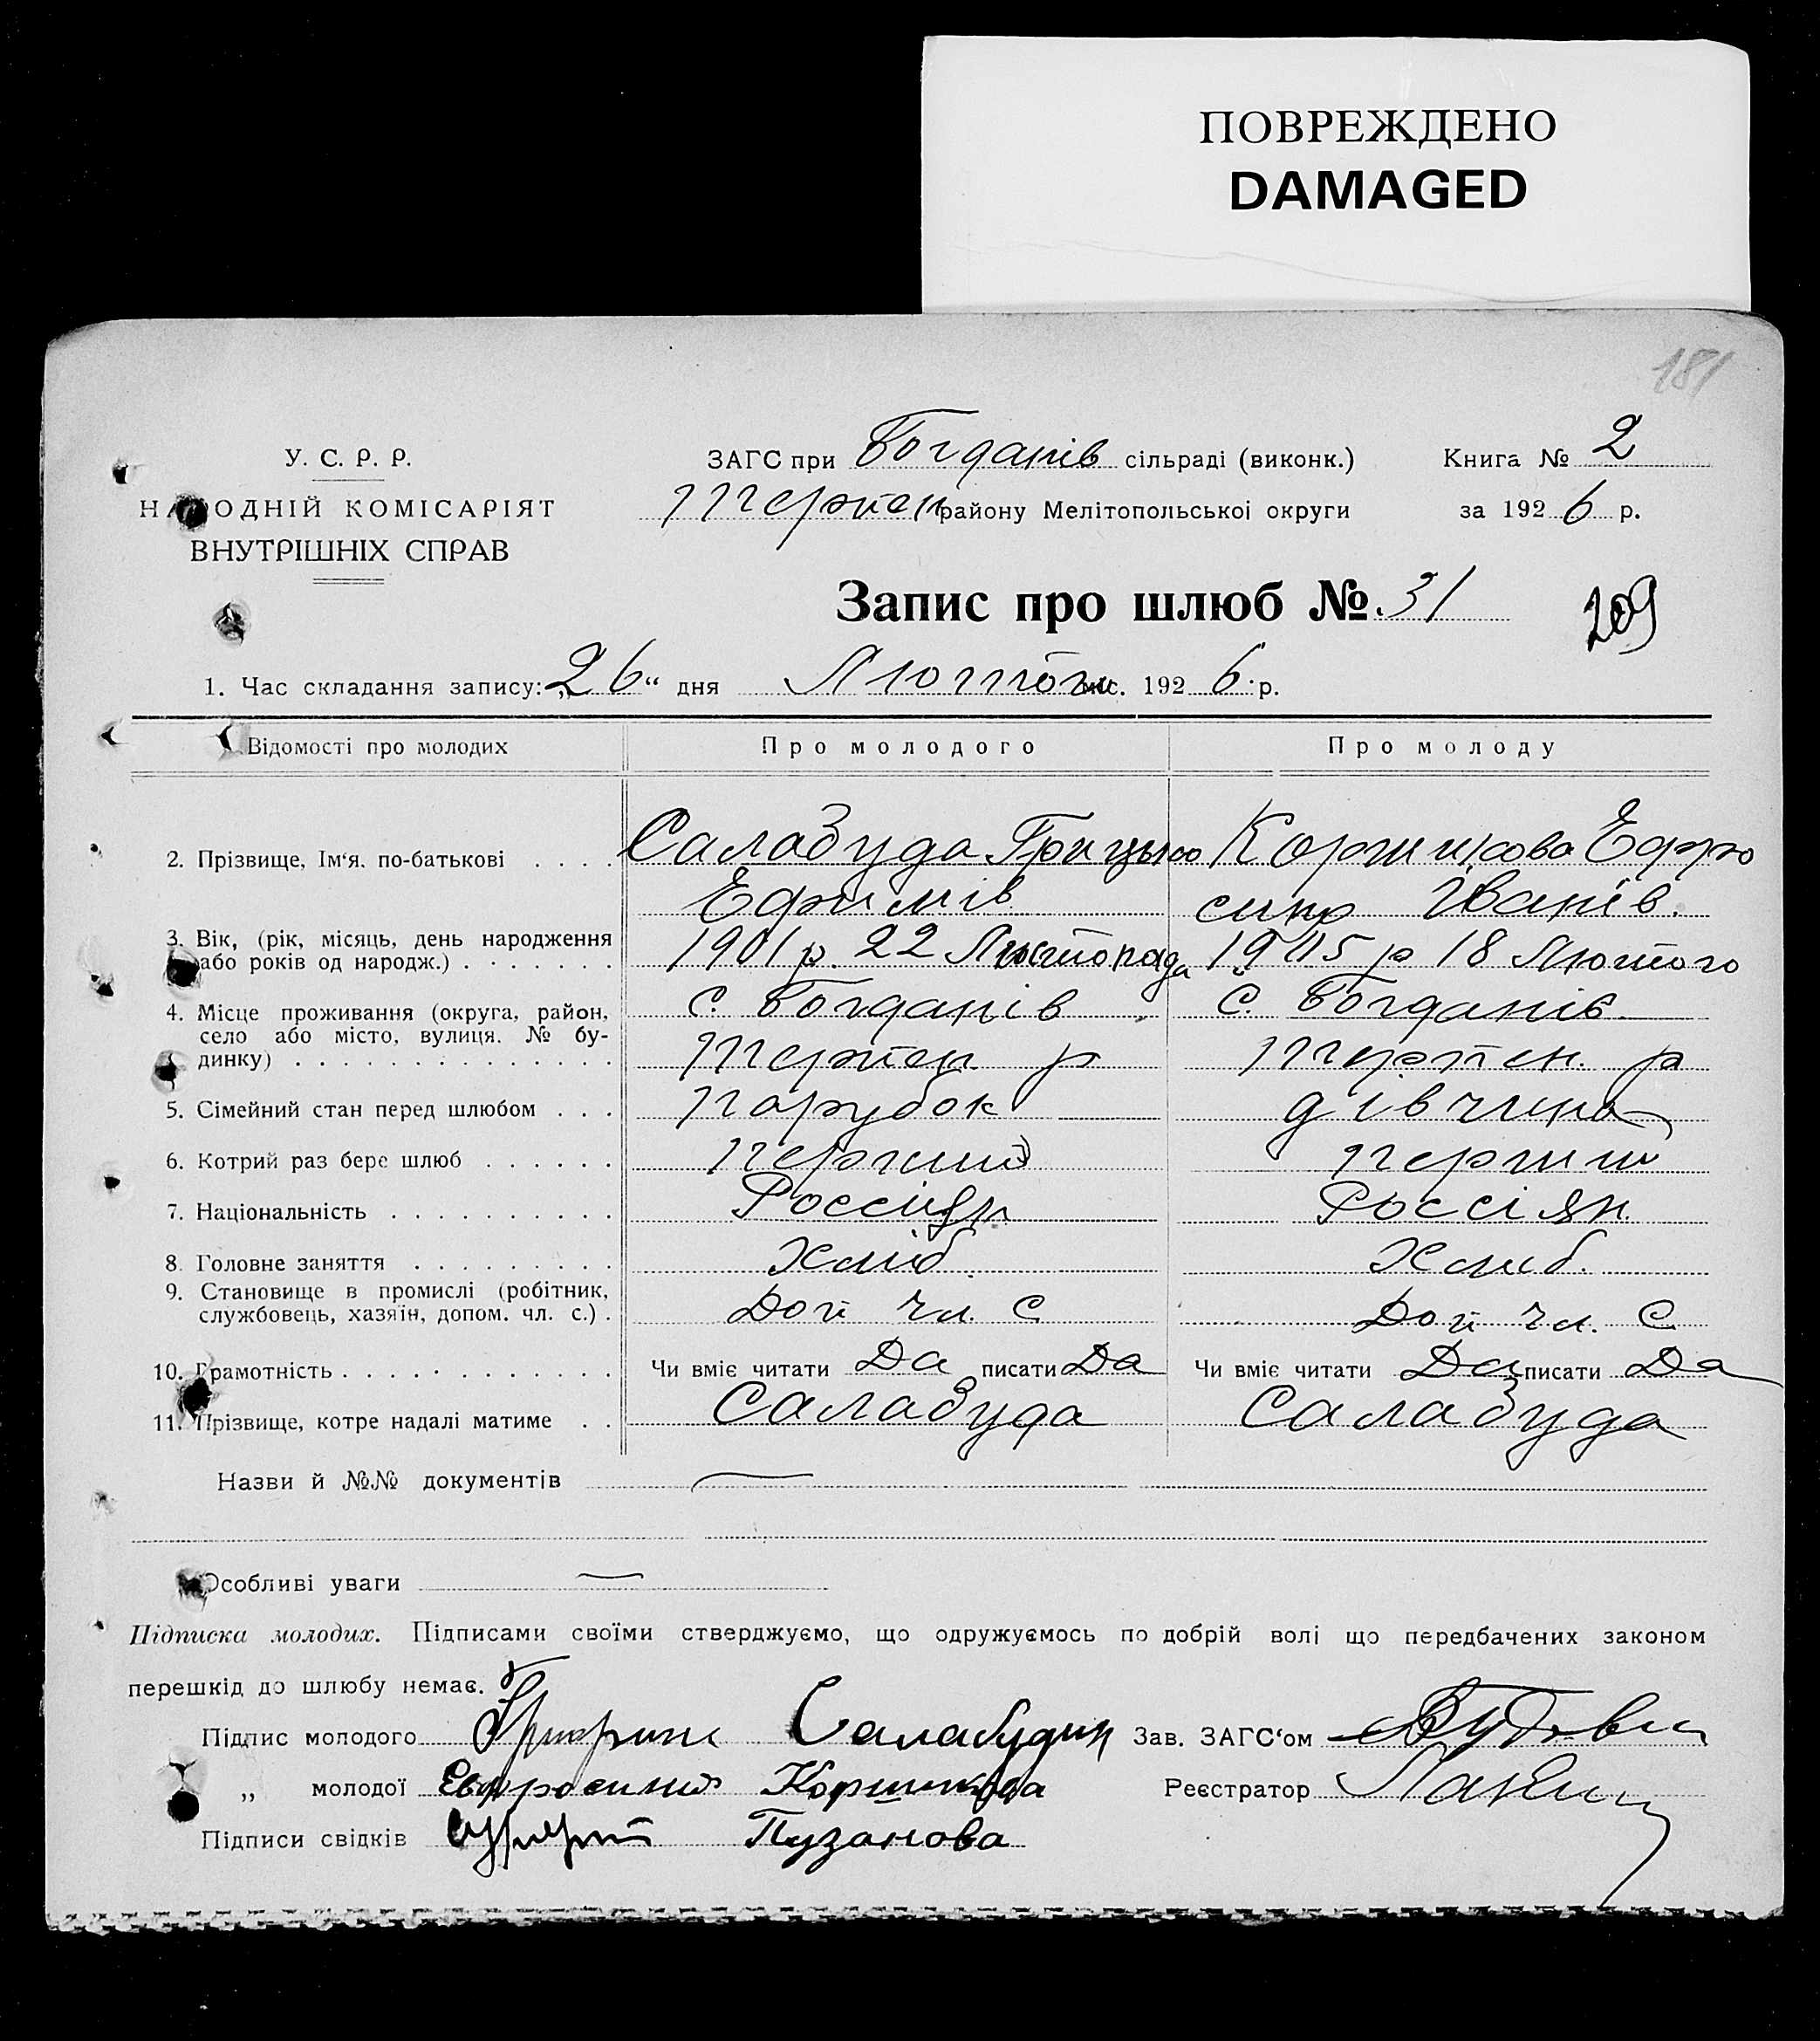 ПОВРЕЖДЕНО
DAMAGED
181
У. С. Р. Р.
НАРОДНІЙ КОМІСАРІЯТ
ВНУТРІШНІХ СПРАВ
ЗАГС при Богданів сільраді (виконк.) Книга № 2
Терпен району Мелітопольської округи за 1926 р.
Запис про шлюб № 31
209
1. Час складання запису: „26“ дня Лютого міс. 1926 р.
Відомості про молодих Про молодого Про молоду
2. Прізвище, Ім‘я, по-батькові . . . . Салабуда Грицько Коршикова Ефро
Ефимів сина Іванів.
3. Вік, (рік, місяць, день народження або років од народж.) . . . . . . . 1901 р. 22 Листопада 1905 р 18 Лютого
4. Місце проживання (округа, район, село або місто, вулиця, № будинку) . . . . . . . . . . . . . с. Богданів с. Богданів
Терпен р Терпен. р
5. Сімейний стан перед шлюбом . . . Парубок дівчина
6. Котрий раз бере шлюб . . . . . . перший перший
7. Національність . . . . . . . . . . Россиян Россіян.
8. Головне заняття . . . . . . . . . Хліб. Хліб.
9. Становище в промислі (робітник, службовець, хазяїн, допом. чл. с.) . Доп чл. С Доп чл. С
10. Грамотність . . . . . . . . . . . . Чи вміє читати Да писати Да Чи вміє читати Да писати Да
11. Прізвище, котре надалі матиме . . Салабуда Салабуда
Назви й №№ документів
Особливі уваги
Підписка молодих. Підписами своїми стверджуємо, що одружуємось по добрій волі що передбачених законом
перешкід до шлюбу немає.
Підпис молодого Салабудин Зав. ЗАГС‘ом
„ молодої Евфросиния Коршикова Реєстратор
Підписи свідків Пузанова